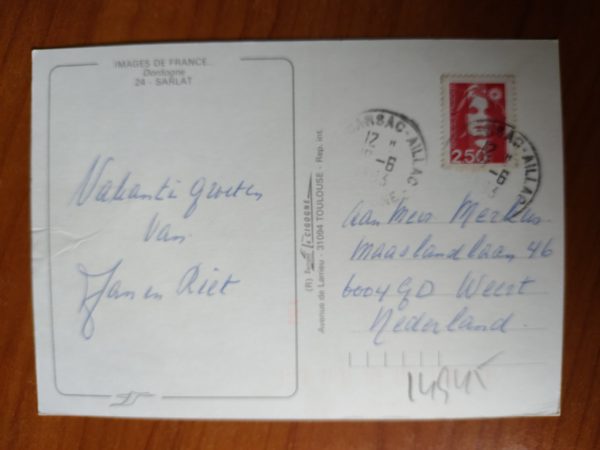 IMAGES DE FRANCE
Dordogne
24 - SARLAT
Vakantie groeten
van
Jan en Riet
(R)
Avenue de Larrieu - 31094 TOULOUSE - Rep. int.
CARSAC-AILLAC
12 H
-6
CARSAC-AILLAC
12 H
-6
2,50
aan Mevr Merkus
Maaslandlaan 46
6004 GD Weert
Nederland.
14945